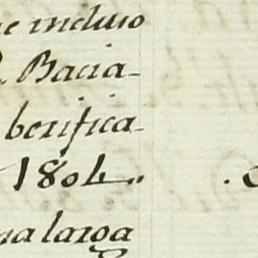 e incluso
. Bacia-
berifica-
1804.
na larga